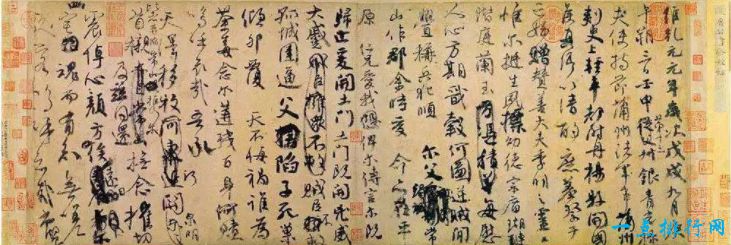 維乾元元年歲次戊戌九月庚
午朔三日壬申第十三叔銀青光祿
夫使持節蒲州諸軍事蒲州
刺史上輕車都尉丹楊縣開國
侯真卿以清酌庶羞祭于
亡姪贈贊善大夫季明之靈曰
惟爾挺生夙標幼德宗廟瑚璉
階庭蘭玉每慰
人心方期戩穀何圖逆賊閒
釁稱兵犯順爾父竭誠常
山作郡余時受命亦在平
原仁兄愛我俾爾傳言爾既
歸止爰開土門土門既開兇威
大蹙賊臣不救
孤城圍逼父陷子死巢
傾卵覆天不悔禍誰為
荼毒念爾遘殘百身何贖
嗚乎哀哉吾承
天澤移牧河關泉明
比者再陷常山攜爾
首櫬及茲同還撫念摧切
震悼心顏方俟遠日
卜爾幽宅魂而有知無嗟
久客嗚呼哀哉尚饗
一点排行网